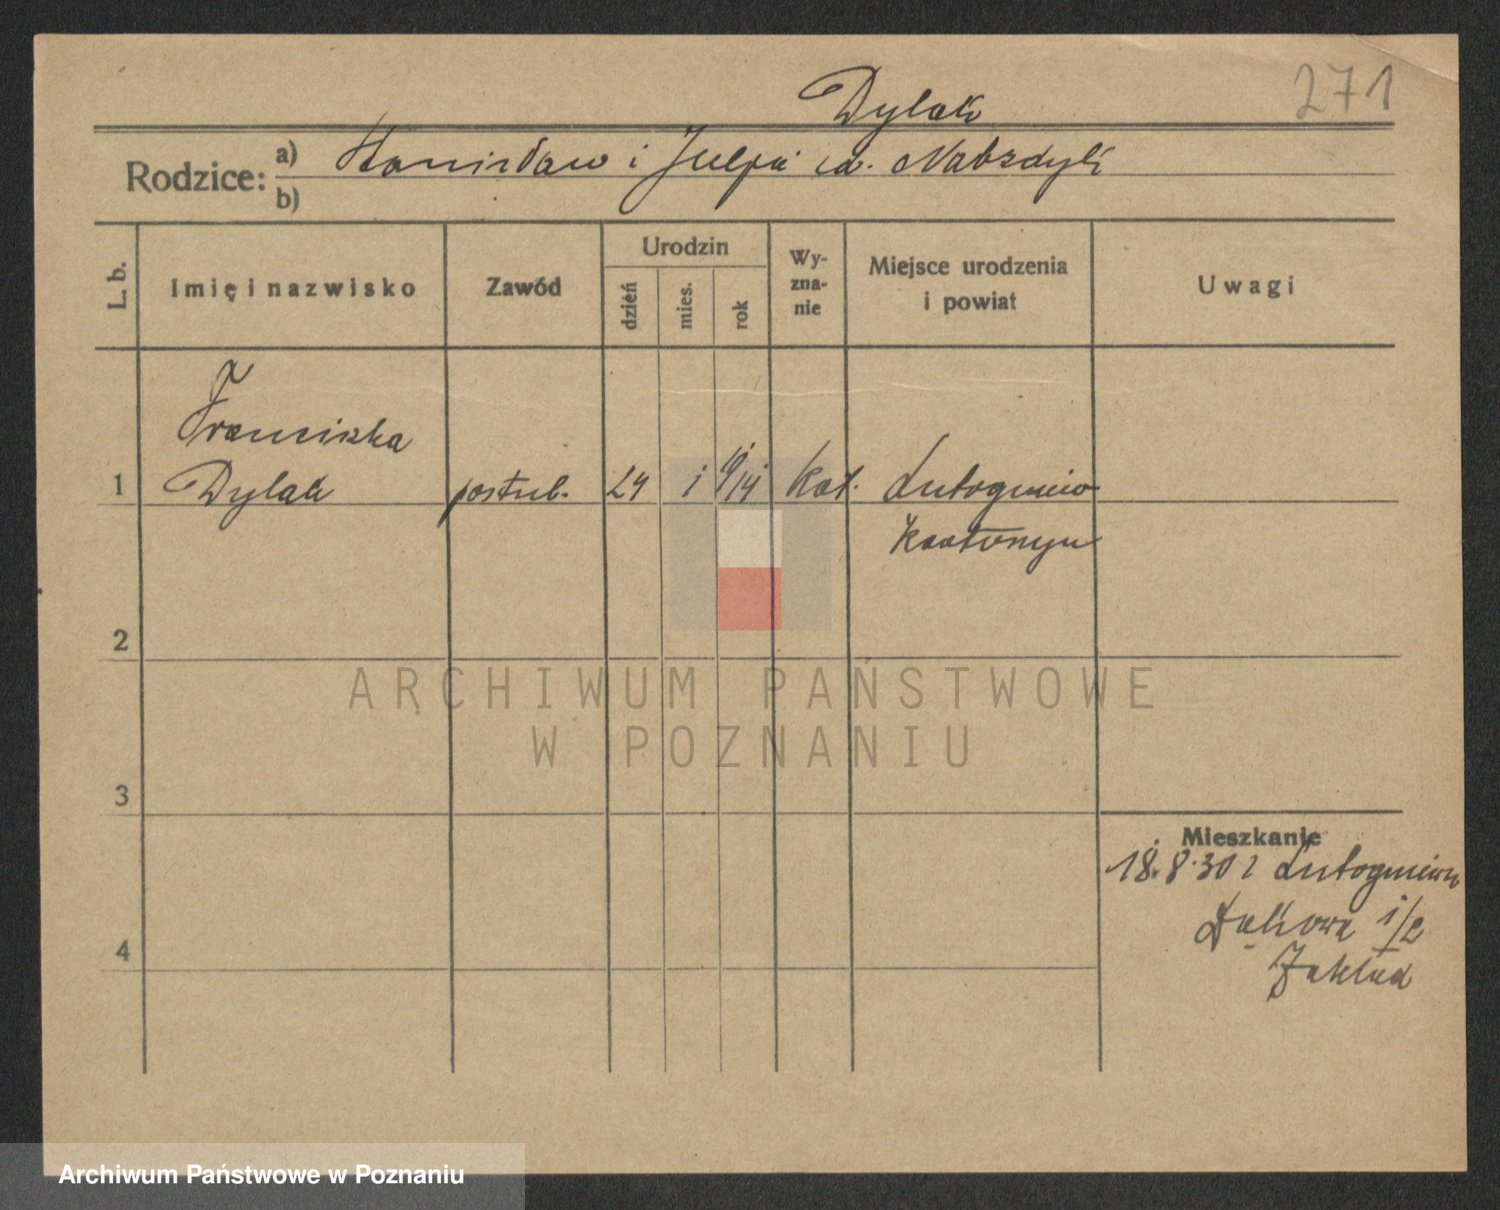 271
Dylak
Rodzice: a) Stanisław i Julja
b)
L. b.
Imię i nazwisko
Zawód
Urodzin
dzień
mies.
rok
Wy-
zna-
nie
Miejsce urodzenia
i powiat
Uwagi
Franciszka
1 Dylak 24 1 kat. Lutogniew
2
3
4
Mieszkanie
18.8.30 z Lutogniewu
Łąkowa 1/2
Zakład
ARCHIWUM PAŃSTWOWE
W POZNANIU
Archiwum Państwowe w Poznaniu